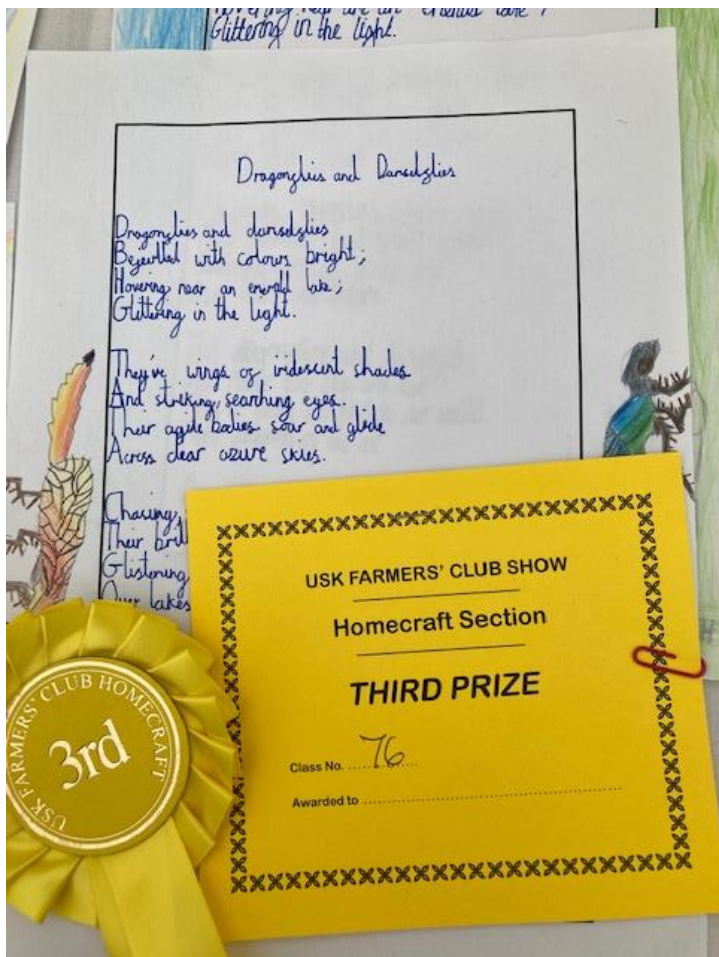 Hovering near an emerald lake;
Glittering in the light.
Dragonflies and Damselflies
Dragonflies and damselflies
Bejewelled with colours bright;
Hovering near an emerald lake;
Glittering in the light.
They've wings of iridescent shades
And striking, searching eyes.
Their agile bodies soar and glide
Across clear azure skies.
Chasing,
Their brill
Glistening
Over lakes
USK FARMERS' CLUB SHOW
Homecraft Section
THIRD PRIZE
Class No. ......76......
Awarded to ............................................................
USK FARMERS' CLUB HOMECRAFT
3rd